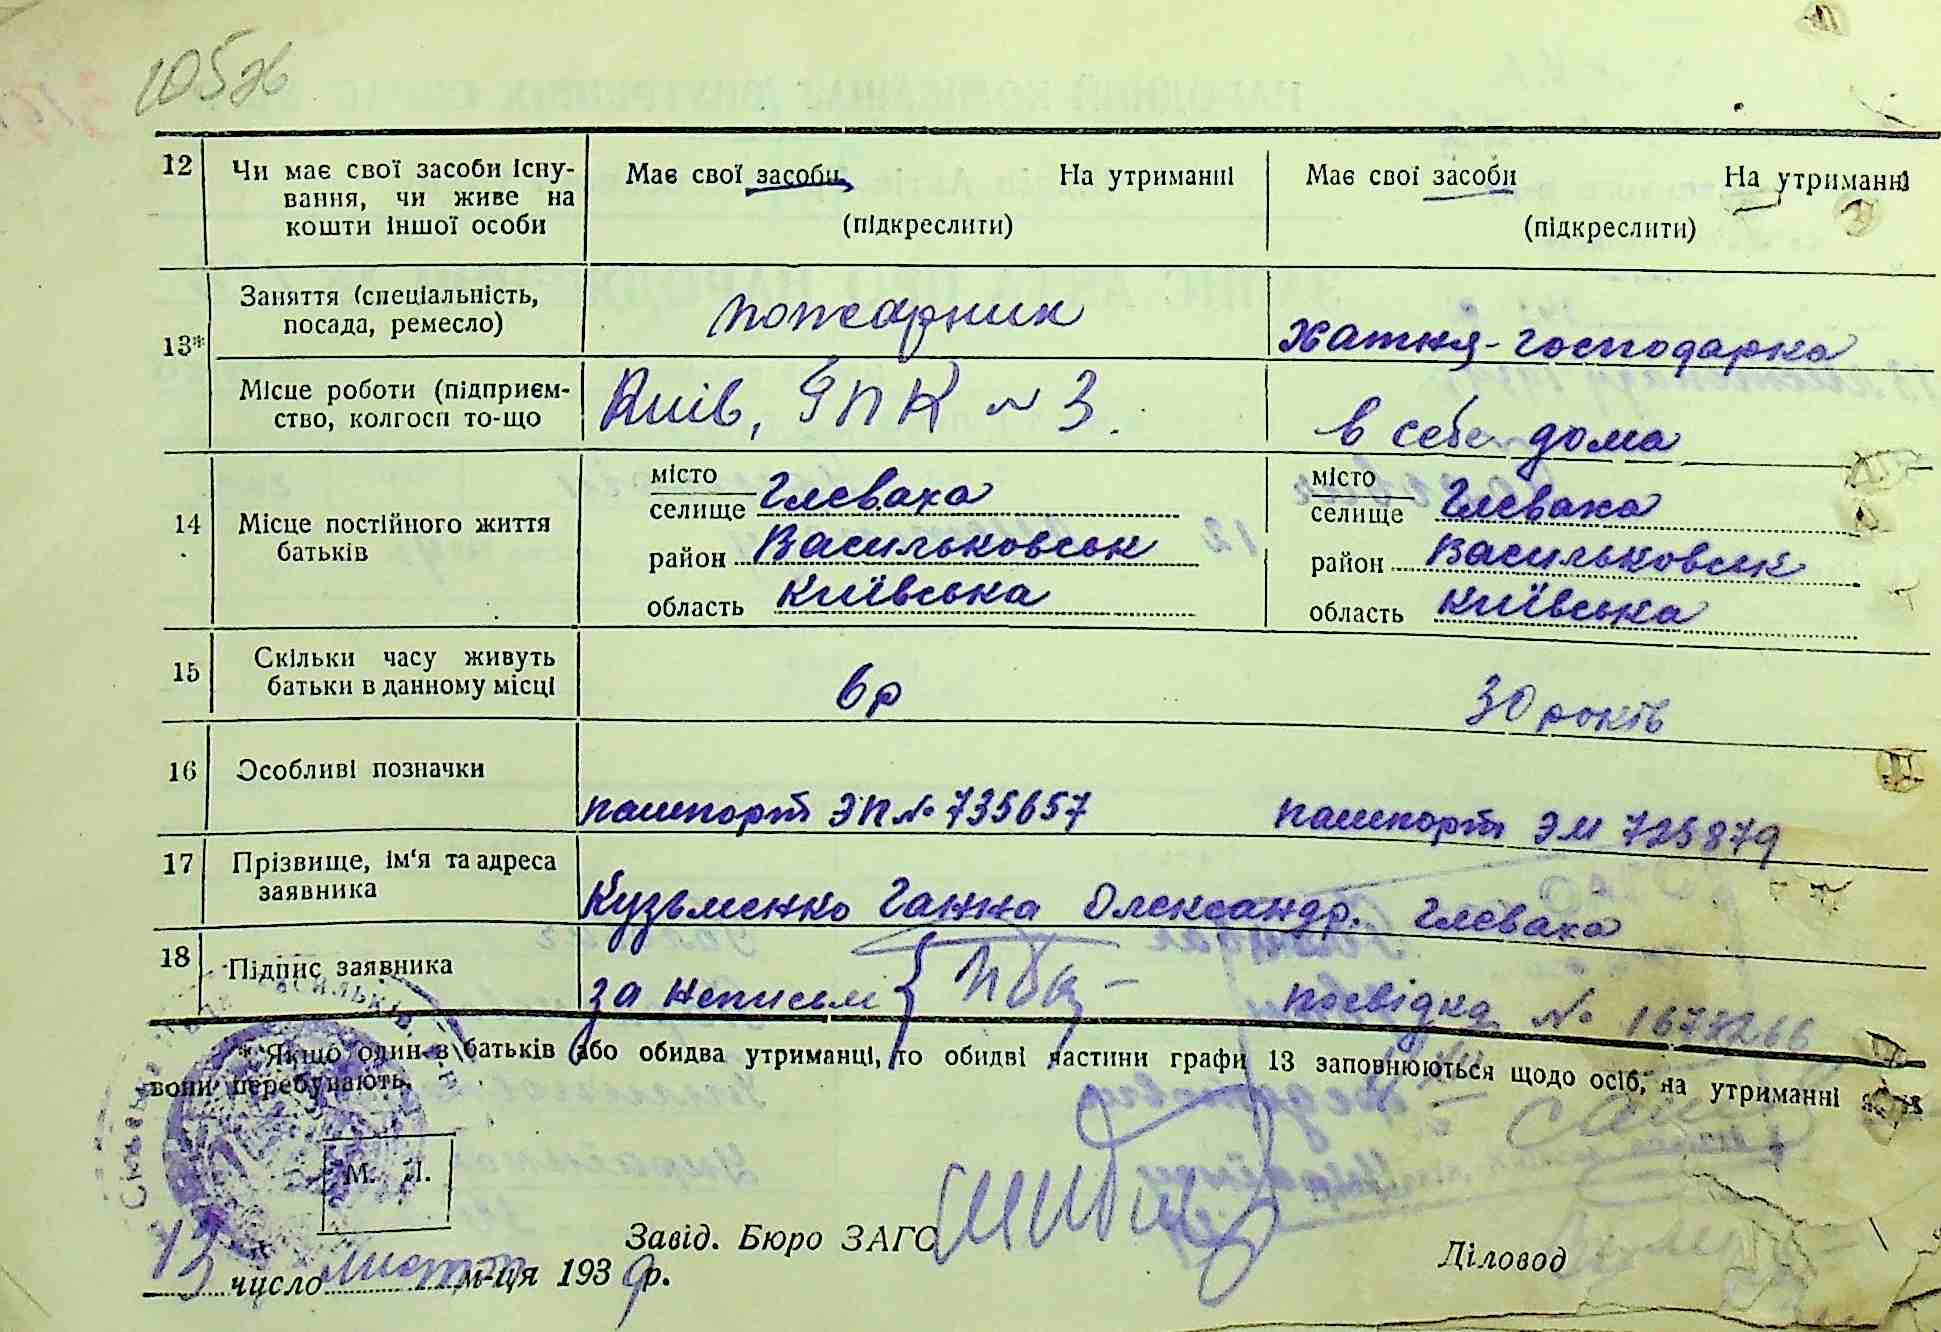 105 зв
12 Чи має свої засоби існу- Має свої засоби На утриманні Має свої засоби На утриманні
вання, чи живе на
кошти іншої особи (підкреслити) (підкреслити)
13* Заняття (спеціальність, пожарник хатня-господарка
посада, ремесло)
Місце роботи (підприєм- Київ, ПК № 3. в себе дома
ство, колгосп то-що
14 Місце постійного життя батьків
місто
селище Глеваха
район Васильковськ
область Київська
місто
селище Глеваха
район Васильковськ
область Київська
15 Скільки часу живуть 6р 30 років
батьки в данному місці
16 Особливі позначки
пашпорт ЭП № 735657 пашпорт ЭМ 725879
17 Прізвище, ім'я та адреса
заявника
Кузьменко Ганна Олександр. Глеваха
18 Підпис заявника за неписьм посвідка №
* Якщо один з батьків або обидва утриманці, то обидві частини графи 13 заповнюються щодо осіб, на утриманні яких
вони перебувають.
М. П.
Завід. Бюро ЗАГС
Діловод
13 число листоп м-ця 1939 р.